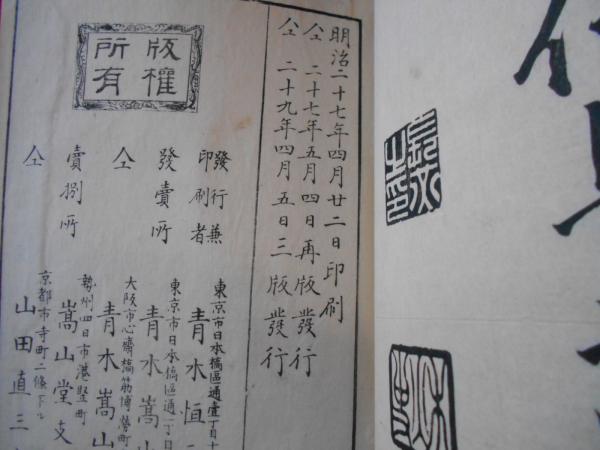 明治二十七年四月廿二日印刷
仝 二十七年五月四日再版發行
仝 二十九年四月五日三版發行
版權
所有
發行兼
印刷者
東京市日本橋區通壹丁目十
青木恒三
發賣所
東京市日本橋區通一丁目
青木嵩山
仝
大阪市心齋橋筋博勞町
青木嵩山
賣捌所
勢州四日市港竪町
嵩山堂支
仝
京都市寺町二條
山田直三